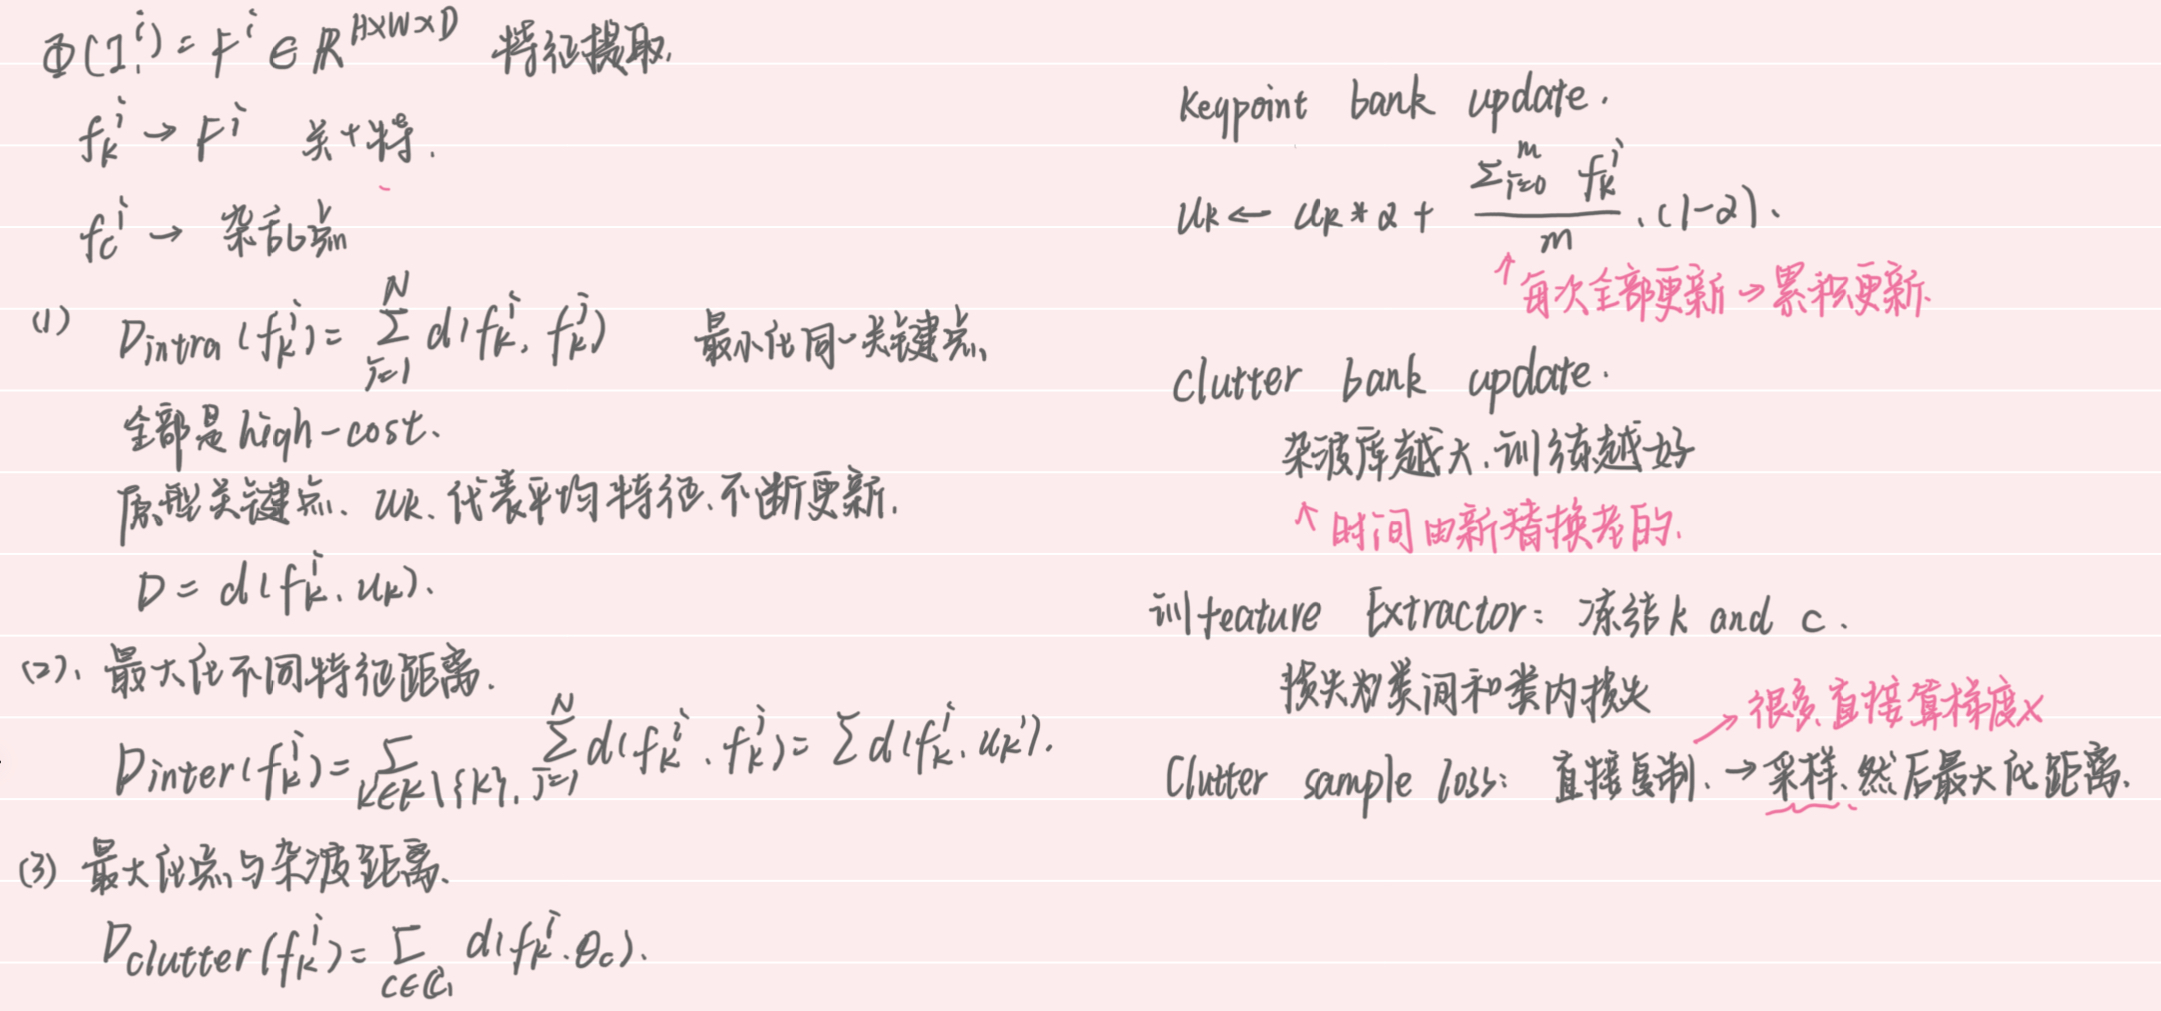 Φ(I^i) = F^i ∈ R^{H×W×D} 特征提取.
f_k^i → F^i 关+特.
f_c^i → 杂乱点
(1) D_intra(f_k^i) = Σ_{j=1}^{N} d(f_k^i, f_k^j) 最小化同一关键点、
全部是high-cost、
原型关键点、u_k、代表平均特征、不断更新.
D = d(f_k^i, u_k).
(2)、最大化不同特征距离.
D_inter(f_k^i) = Σ_{k'∈K\{k}}, Σ_{j=1}^{N} d(f_k^i, f_k^j) = Σ d(f_k^i, u_k').
(3) 最大化点与杂波距离、
D_clutter(f_k^i) = Σ_{c∈C} d(f_k^i, θ_c).
Keypoint bank update.
u_k ← u_k * α + \frac{Σ_{i=0}^{m} f_k^i}{m} · (1-α).
↑每次全部更新→累积更新.
Clutter bank update.
杂波库越大、训练越好
↑时间由新替换老的.
训feature Extractor: 冻结k and c.
损失为类间和类内损失
↗很多,直接算梯度×
Clutter sample loss: 直接复制、→采样、然后最大化距离.